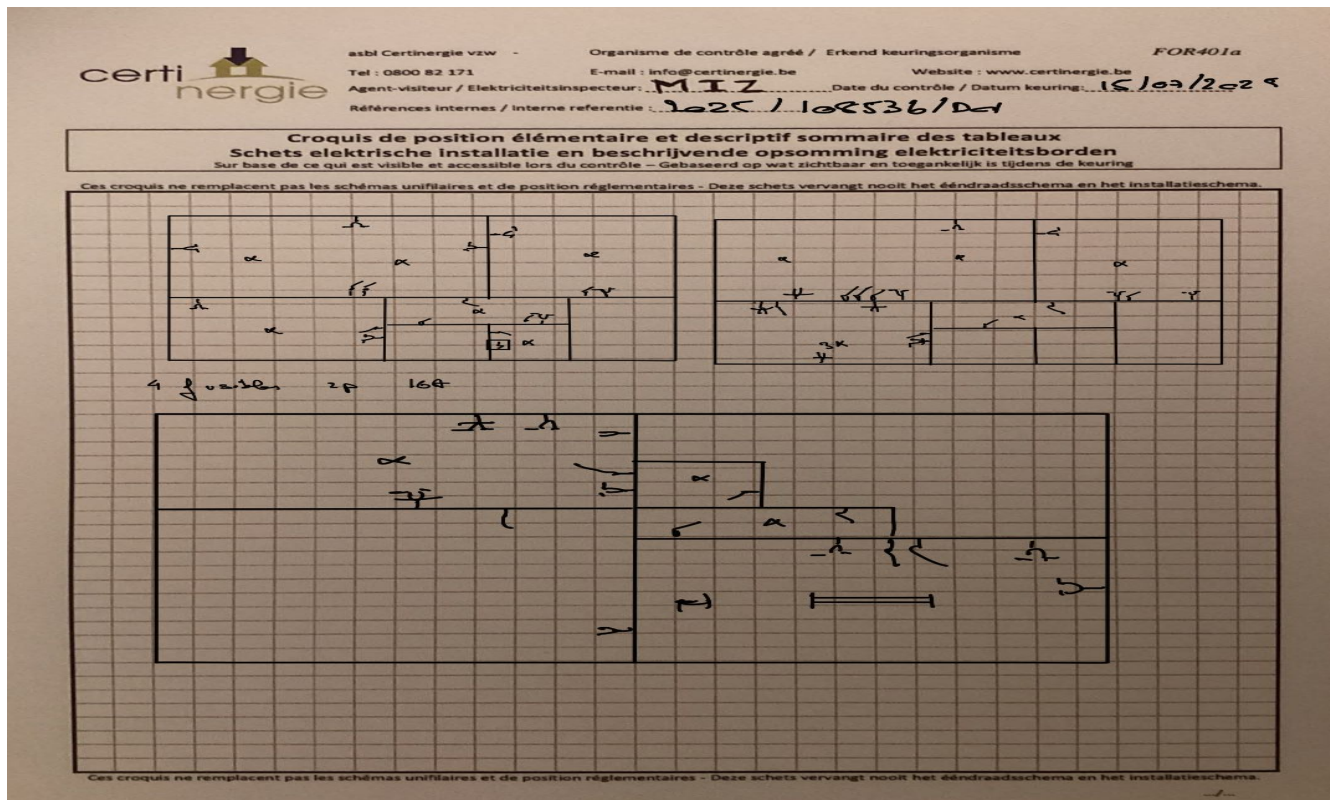 certinergie
asbl Certinergie vzw - Organisme de contrôle agréé / Erkend keuringsorganisme FOR401a
Tel : 0800 82 171 E-mail : info@certinergie.be Website : www.certinergie.be
Agent-visiteur / Elektriciteitsinspecteur: MIZ Date du contrôle / Datum keuring: 15/07/202
Références internes / Interne referentie : 2025 / 108536/
Croquis de position élémentaire et descriptif sommaire des tableaux
Schets elektrische installatie en beschrijvende opsomming elektriciteitsborden
Sur base de ce qui est visible et accessible lors du contrôle – Gebaseerd op wat zichtbaar en toegankelijk is tijdens de keuring
Ces croquis ne remplacent pas les schémas unifilaires et de position réglementaires - Deze schets vervangt nooit het ééndraadsschema en het installatieschema.
4 fusibles 2P 16A
Ces croquis ne remplacent pas les schémas unifilaires et de position réglementaires - Deze schets vervangt nooit het ééndraadsschema en het installatieschema.